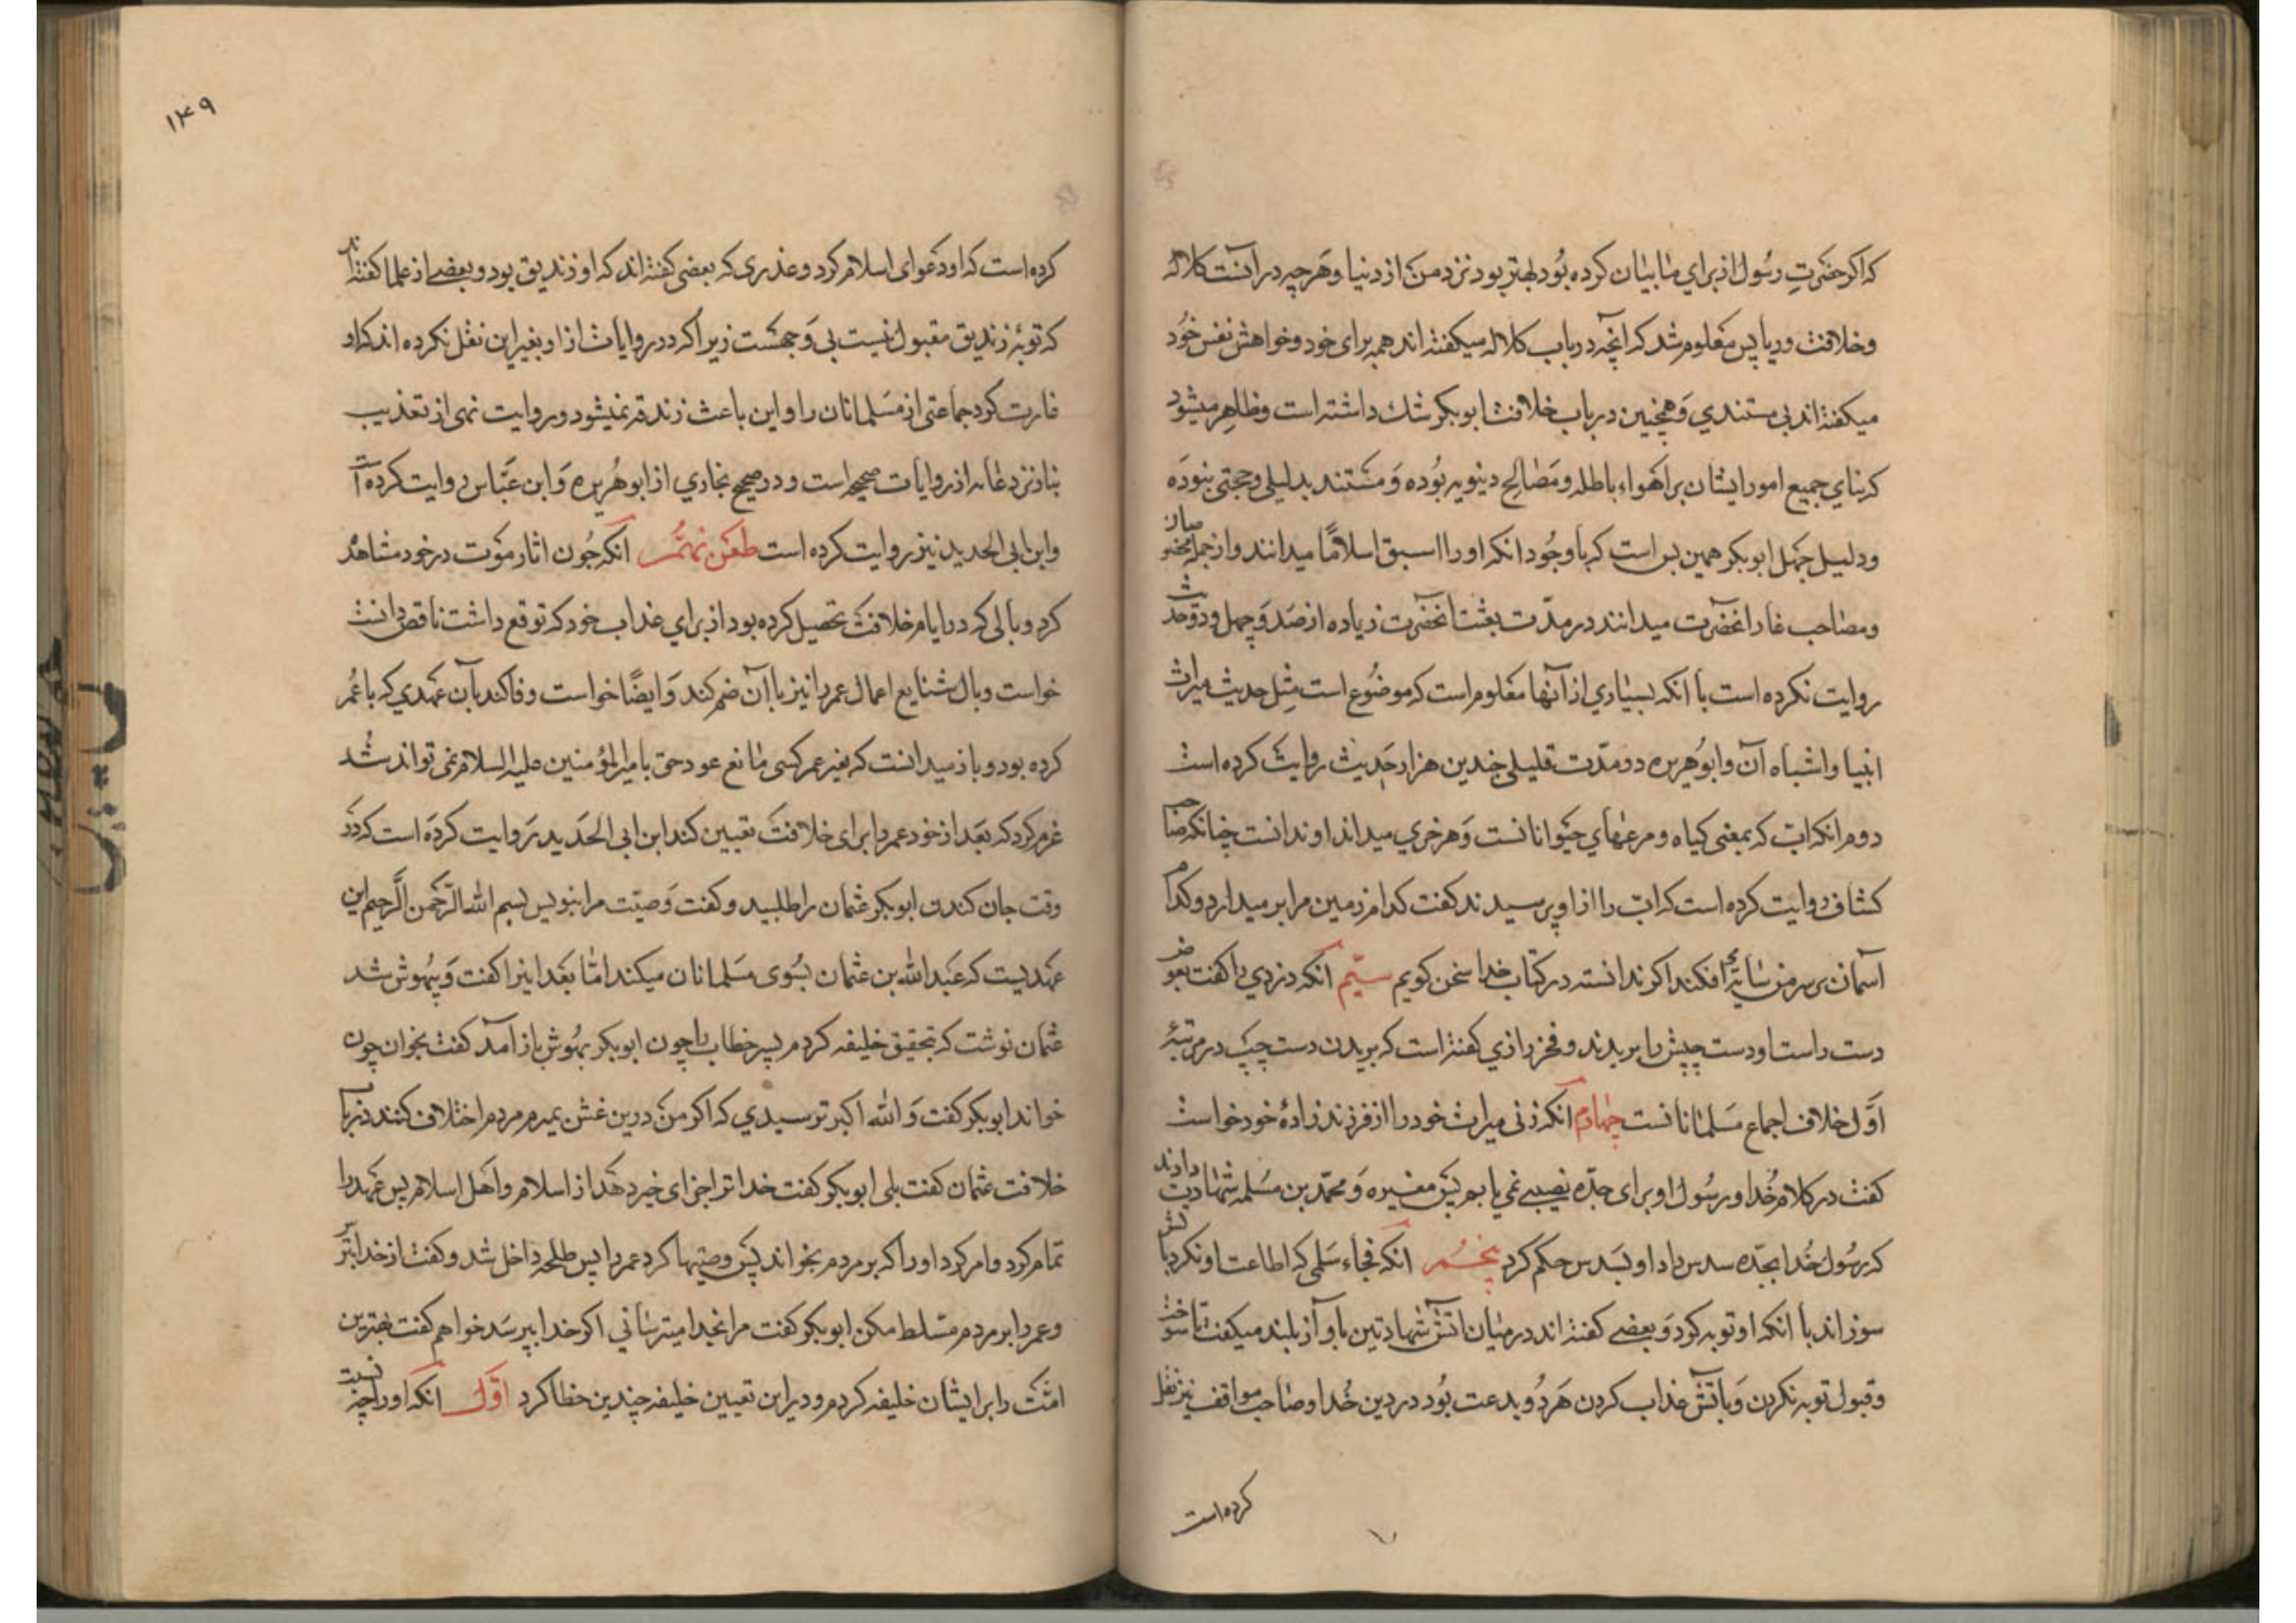 که اکر حضرتِ رسُول از برای ما بیان کرده بُود بهتر بود نزد من از دنیا و هَرچه در آنست کلاله
وخلافت و ربا پس معلوم شد که آنچه در باب کلاله میکفته اند همه برای خود وخواهش نفس خُود
میکفته اند بی مستندي وَهمچنین در باب خلافت ابوبکر شك داشته است وظاهِر میشود
که بنای جمیع امور ایشان بر اَهواءِ باطله ومَصالِح دینویه بُوده وَمسْتند بدلیلی وحجتی نبوده
ودلیل جهَل ابوبکر همین بس است که باوجُود انکه او را اسبق اسلامًا میدانند و از جمله
ومصاحب غار انحضَرت میدانند در مدّت بعثت انحضَرت زیاده از صَد وَچهل ودو حدیث
روایت نکرده است با انکه بسیاري از آنها معَلوم است که موضُوع است مثِل حدیث میراث
انبیا واشباه آن وابوُهریره در مدّت قلیلی چندین هزار حَدیث روایت کرده است
دوم انکه ابّ که بمعنی کیاه ومرعهاي حیَوانانست وَهر خري میداند او ندانست چنانکه صاحب
کشاف روایت کرده است که ابّ را از او پرسیدند کفت کدام زمین مرا بر میدارد وکدام
آسمان بر سر من سایه افکند اکر ندانسته در کتاب خدا سخن کویم سیّم انکه دزدي را کفت بعوض
دست راست او دست چپش را بریدند وفخر رازي کفته است که بریدن دست چپ در مرتبهٔ
اوّل خلاف اجماع مسَلمانانست چهارم انکه زنی میراث خود را از فرزند زادهٔ خود خواست
کفت در کلام خُدا ورسُول او برای جدّه نصیبی نمي یابم پس مغیره وَمحمّد بن مسَلمه شهادت دادند
که رسُول خُدا بجدّه سدس داد او بسَدس حکم کرد پنجُم انکه فجاء سَلمی که اطاعت او نکرد باتش
سوزاند با انکه او توبه کرد وَبعضی کفته اند در میان اتش شهادتین باواز بلند میکفت تا سوخت
وقبول توبه نکردن وَباتش عذاب کردن هَر دُو بدعت بُود در دین خُدا وصاحب مواقف نیز نقل
کرده است
۱۴۹
کرده است که او دعَوای اسلام کرد وعذری که بعضی کفته اند که او زندیق بود وبعضی از علما کفته اند
که توبهٔ زندیق مقبول نیست بی وَجهست زیرا که در روایات از او بغیر این نقل نکرده اند که او
غارت کرد جماعتی از مسَلمانان را و این باعث زندقه نمیشود و روایت نهی از تعذیب
بنار نزد عامه از روایات صحیحه است و در صحیح بخاري از ابو هُریره وَابن عَبّاس روایت کرده است
وابن ابی الحدید نیز روایت کرده است طعَن نهُم انکه چُون اثار موَت در خود مشاهده
کرد وبالی که در ایام خلافت تحصیل کرده بود از براي عذاب خود که توقع داشت ناقص دانست
خواست وبال شنایع اعمال عمر را نیز با آن ضم کند وَایضًا خواست وفا کند بآن عهَدي که با عُمر
کرده بود و باز میدانست که بغیر عمر کسی مانع عود حق بامیر المؤمنین علیه السلام نمی تواند شُد
عزم کرد که بعَد از خود عمر را برای خلافت تعیین کند ابن ابی الحَدید رَوایت کردَه است که در
وقت جان کندن ابوبکر عثمان را طلبید وکفت وَصیّت مرا بنویس بسم الله الرّحَمن الرَّحیم این
عهَدیست که عَبد الله بن عثمان بسُوی مسَلمانان میکند امّا بعَد اینرا کفت وَبیهُوش شد
عثمان نوشت که بتحقیق خلیفه کردم پسر خطاب را چون ابوبکر بهُوش باز آمد کفت بخوان چون
خواند ابوبکر کفت وَ الله اکبر ترسیدي که اکر من درین غش بمیرم مردم اختلاف کنند در باب
خلافت عثمان کفت بلی ابوبکر کفت خدا ترا جزای خیر دهَد از اسلام واهَل اسلام پس عهَد را
تمام کرد وامر کرد او را که بر مردم بخواند پَس وصیتها کرد عمر را پس طلحه داخل شد وکفت از خدا بترس
وعمر را بر مردم مسَلط مکن ابوبکر کفت مرا بخدا میترساني اکر خدا بپرسَد خواهم کفت بهَترین
امتّت را بر ایشان خلیفه کردم و در این تعیین خلیفه چندین خطا کرد اوّل انکه او را چه نسبت